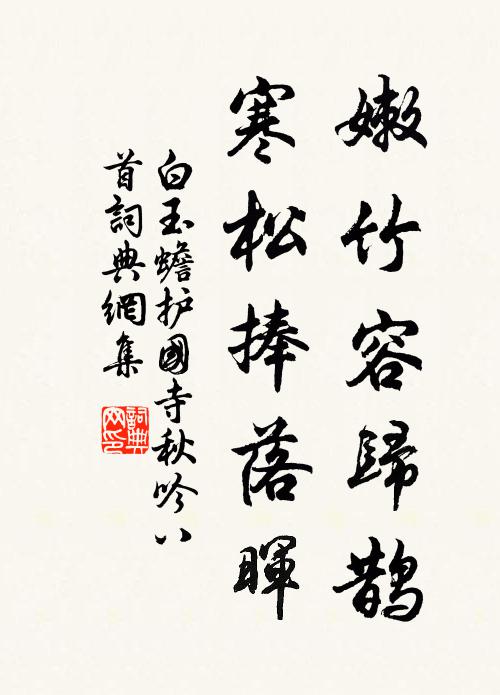 嫩竹容歸鵲
寒松捧落暉
白玉蟾护國寺秋吟八
首詞典網集
詞典
网印